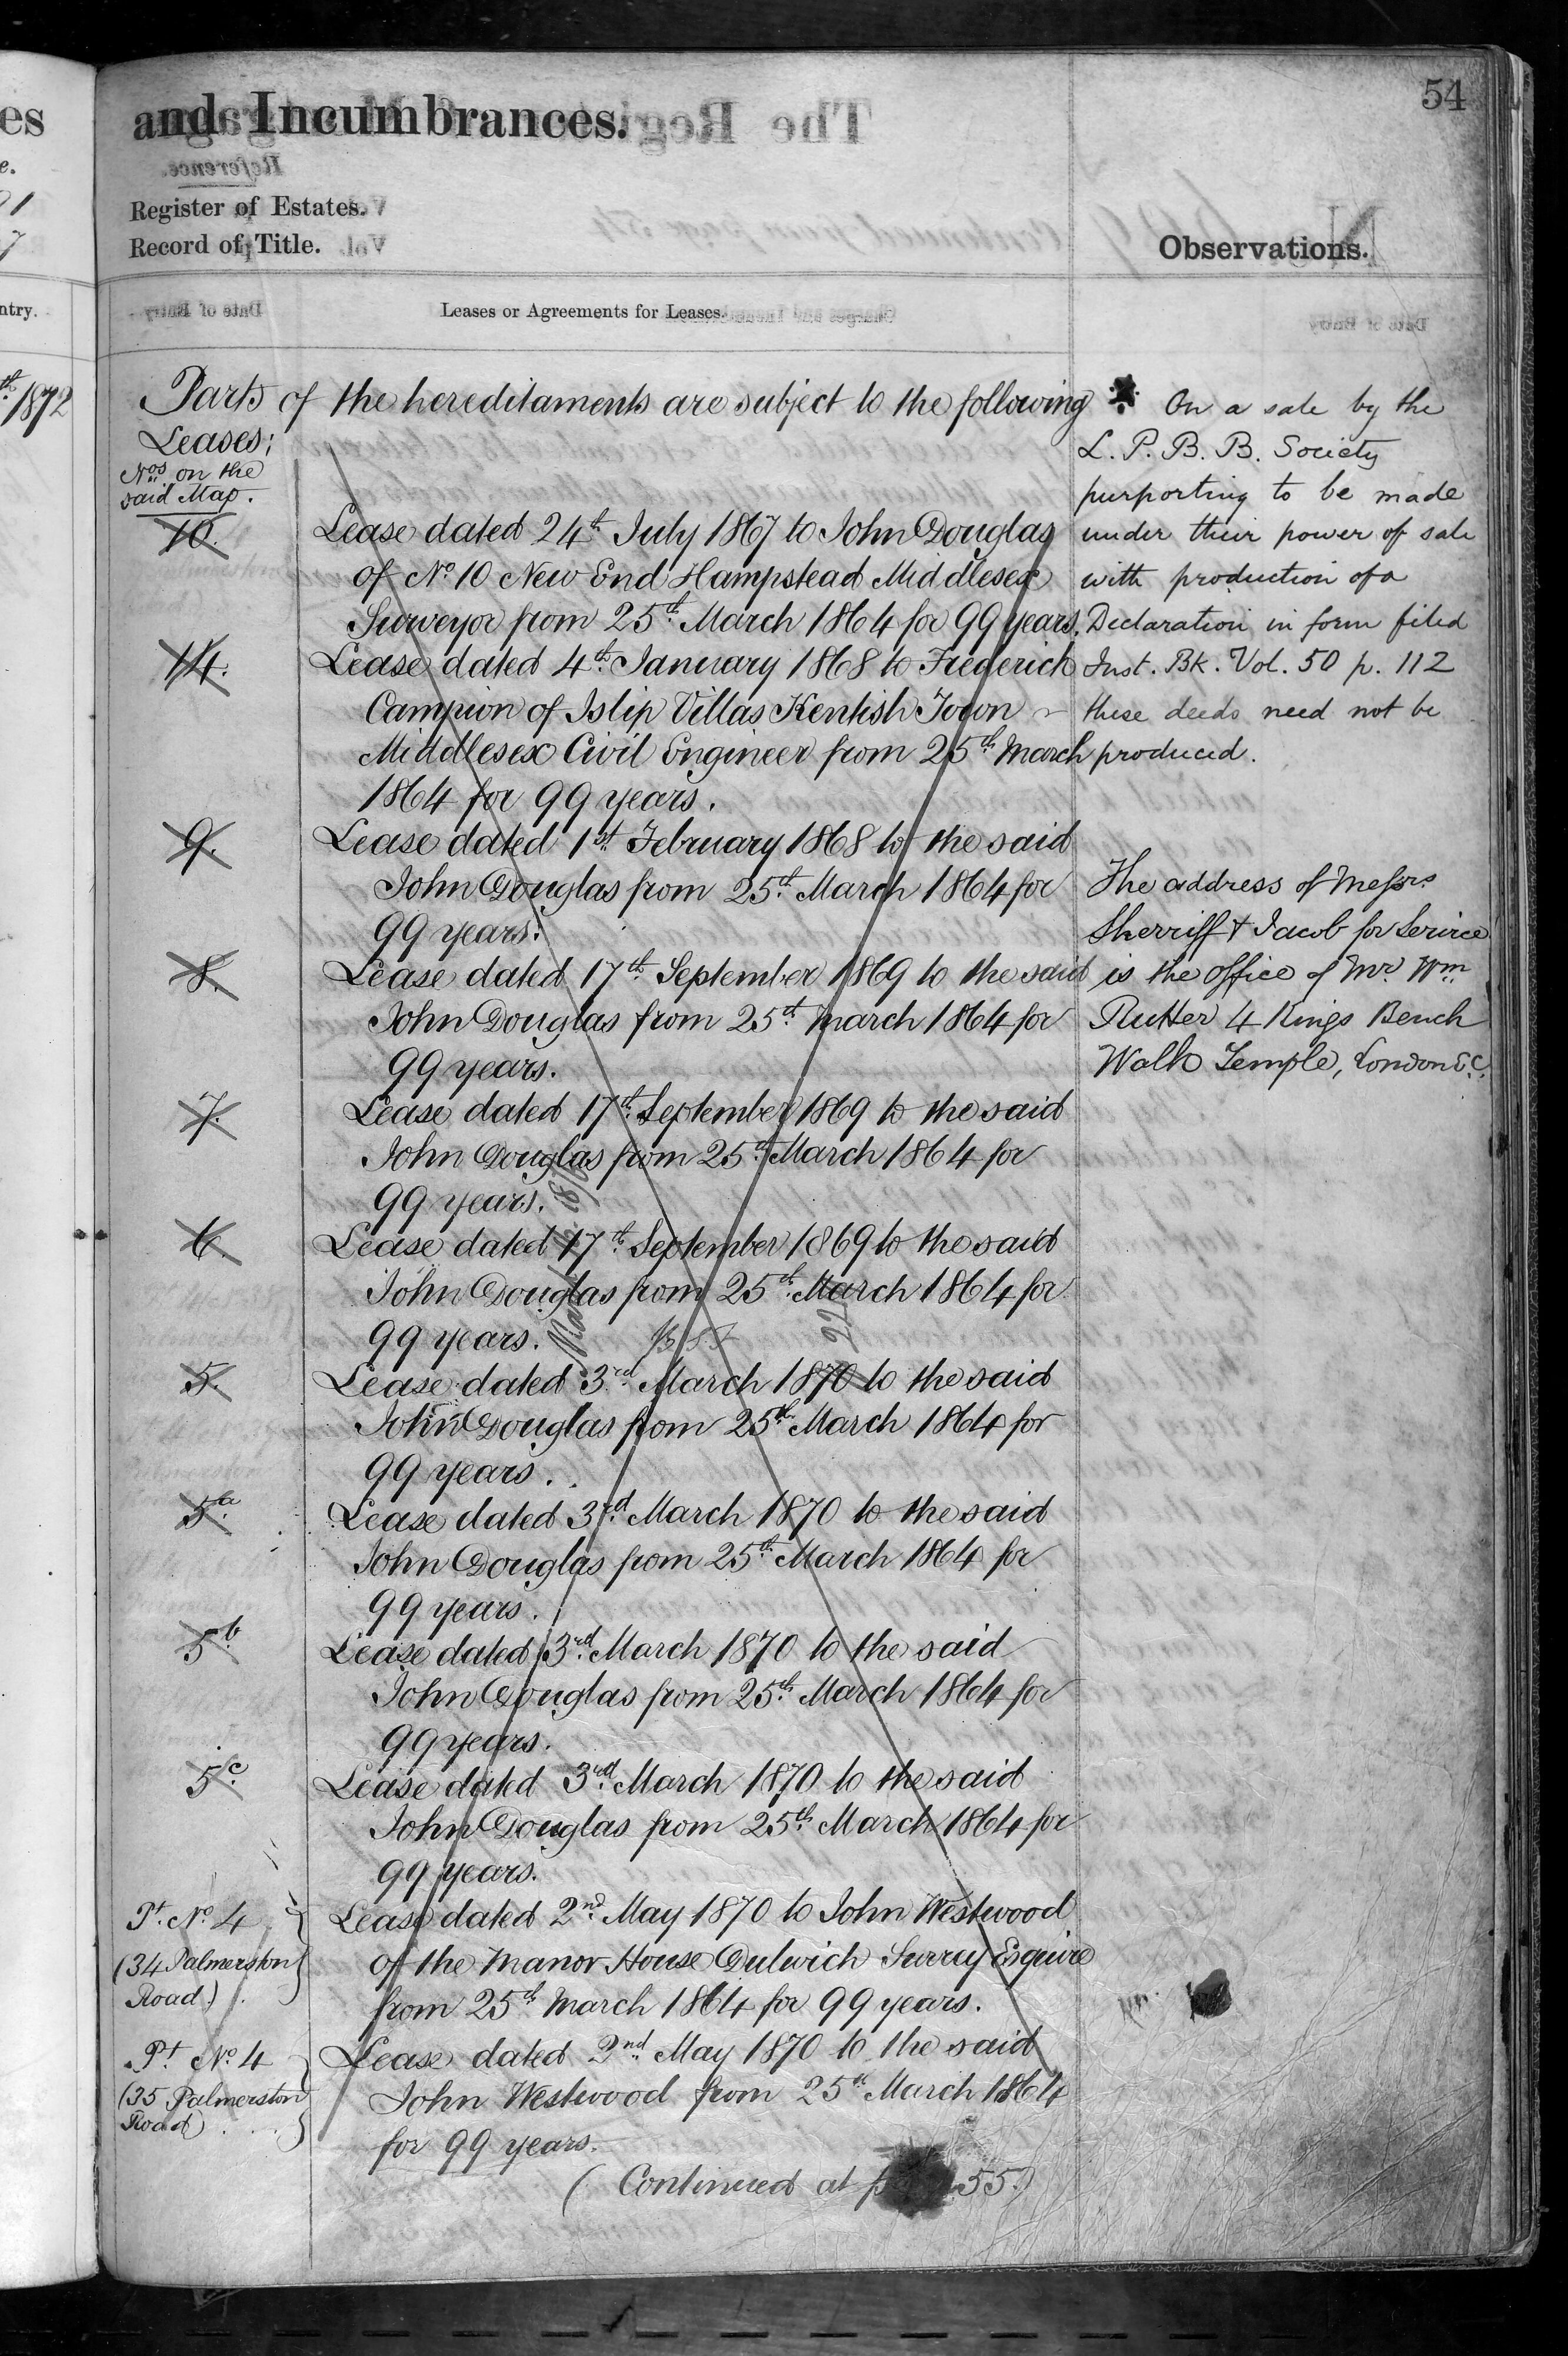 54
and Incumbrances.
Register of Estates.
Record of Title.
Observations.
Leases or Agreements for Leases.
Parts of the hereditaments are subject to the following
Leases:
Nos. on the
said Map.
10. Lease dated 24th July 1867 to John Douglas
of No. 10 New End Hampstead Middlesex
Surveyor from 25th March 1864 for 99 years.
14. Lease dated 4th January 1868 to Frederick
Campion of Islip Villas Kentish Town
Middlesex Civil Engineer from 25th March
1864 for 99 years.
9. Lease dated 1st February 1868 to the said
John Douglas from 25th March 1864 for
99 years.
8. Lease dated 17th September 1869 to the said
John Douglas from 25th March 1864 for
99 years.
7. Lease dated 17th September 1869 to the said
John Douglas from 25th March 1864 for
99 years.
6. Lease dated 17th September 1869 to the said
John Douglas from 25th March 1864 for
99 years.
5. Lease dated 3rd March 1870 to the said
John Douglas from 25th March 1864 for
99 years.
5a. Lease dated 3rd March 1870 to the said
John Douglas from 25th March 1864 for
99 years.
5b. Lease dated 3rd March 1870 to the said
John Douglas from 25th March 1864 for
99 years.
5c. Lease dated 3rd March 1870 to the said
John Douglas from 25th March 1864 for
99 years.
Pt. No. 4 Lease dated 2nd May 1870 to John Westwood
(34 Palmerston of the Manor House Dulwich Surrey Esquire
Road) from 25th March 1864 for 99 years.
Pt. No. 4 Lease dated 2nd May 1870 to the said
(35 Palmerston John Westwood from 25th March 1864
Road) for 99 years.
(Continued at 55)
On a sale by the
L. P. B. B. Society
purporting to be made
under their power of sale
with production of a
Declaration in form filed
Inst. Bk. Vol. 50 p. 112
these deeds need not be
produced.
The address of Messrs
Sherriff & Jacob for Service
is the office of Mr. Wm.
Rutter 4 Kings Bench
Walk Temple, London E.C.
es
e.
91
7
ntry.
th 1872